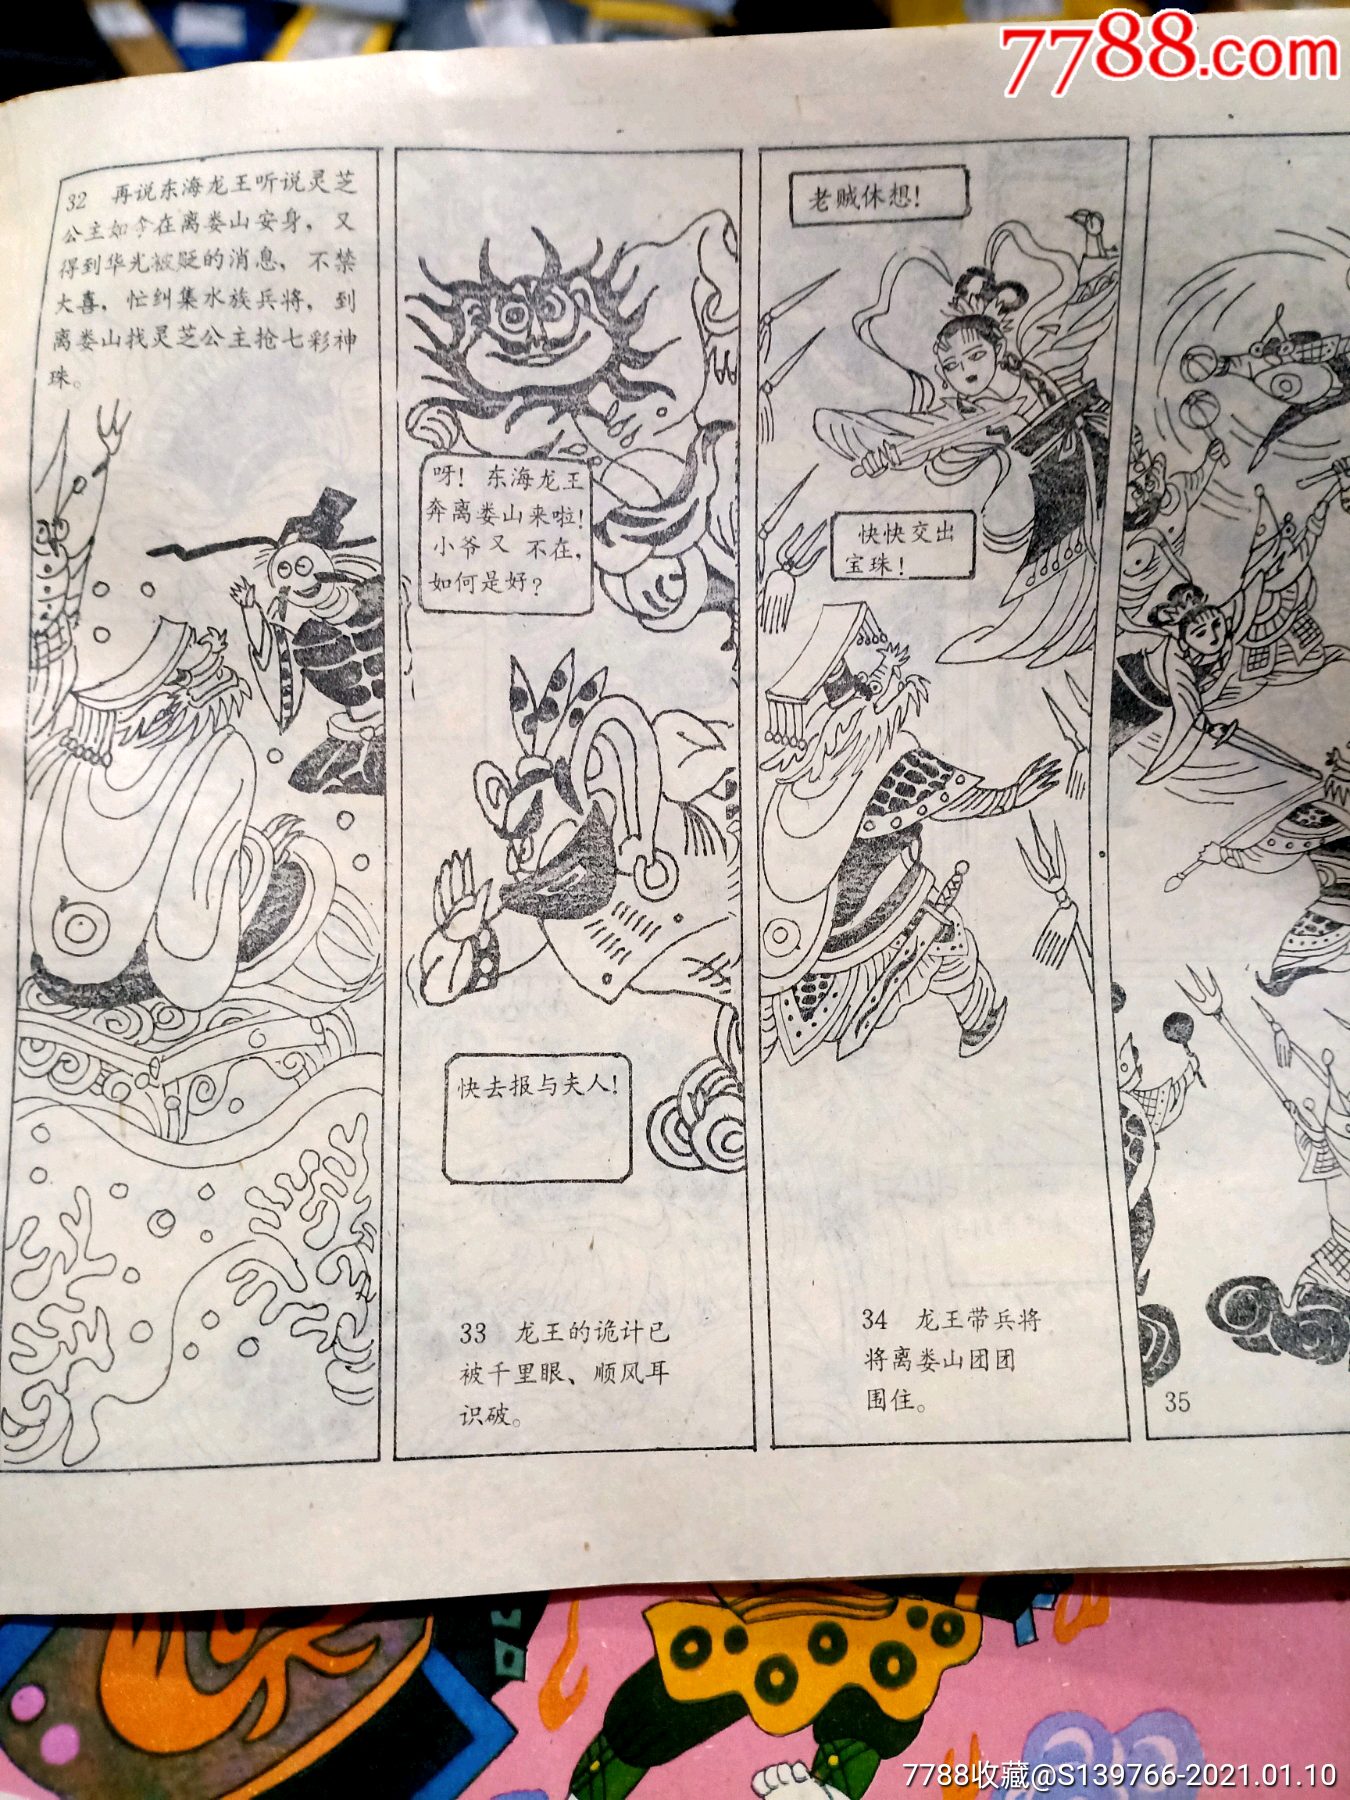 7788.com
32 再说东海龙王听说灵芝
公主如今在离娄山安身，又
得到华光被贬的消息，不禁
大喜，忙纠集水族兵将，到
离娄山找灵芝公主抢七彩神
珠。
呀！东海龙王
奔离娄山来啦！
小爷又不在，
如何是好？
快去报与夫人！
33 龙王的诡计已
被千里眼、顺风耳
识破。
老贼休想！
快快交出
宝珠！
34 龙王带兵将
将离娄山团团
围住。
35
7788收藏@S139766-2021.01.10